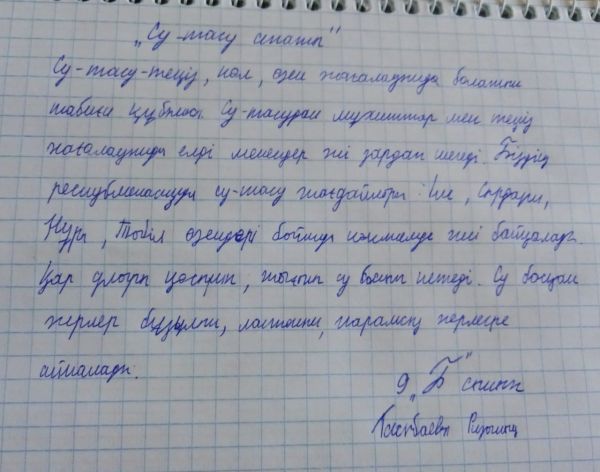 „Су-тасу апаты"
Су-тасу-теңіз, көл, өзен жағалауында болатын
табиғи құбылыс. Су-тасудан мұхиттар мен теңіз
жағалауында елді мекендер жиі зардап шегеді. Біздің
республикасында су-тасу жағдайлары: Іле, Сырдария,
Нұра, Тобыл өзендері бойында көктемде жиі байқалады.
Қар су басып кетеді. Су басқан
жерлер бұзылып, ластанып, жарамсыз жерлерге
айналады.
9 „Б" сынып